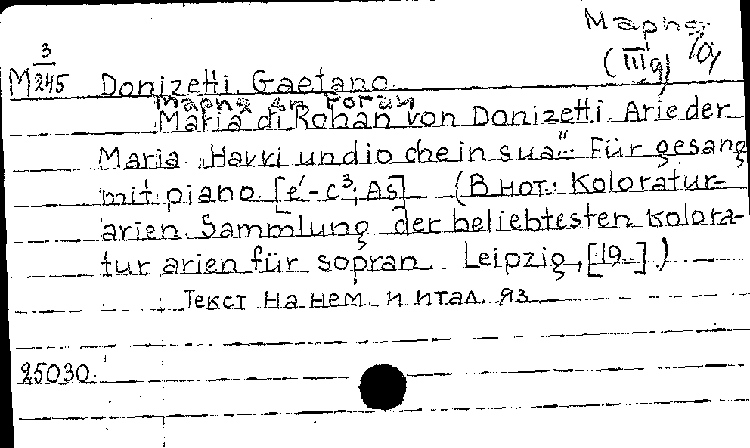 Мария
(III д) 10/
M 3/245 Donizetti. Gaetano.
Мария ди Роган
„Maria di Rohan von Donizetti. Arie der
Maria „Havvi un dio che in sua“. Für gesang
mit piano [e'-c³; As] (В нот.: Koloratur-
arien. Sammlung der beliebtesten kolora-
tur arien für sopran. Leipzig, [19..].)
Текст на нем. и итал. яз.
25030.